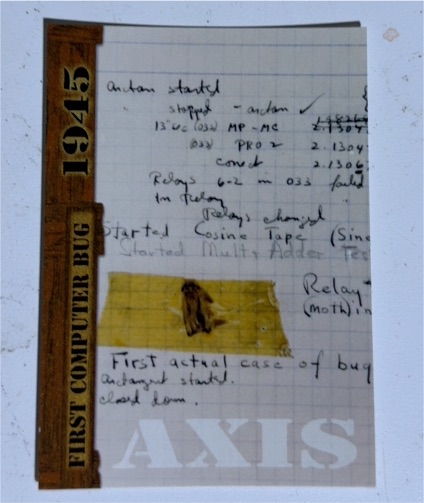 1945
FIRST COMPUTER BUG
arctan started
stopped - arctan ✓
13"uc (032) MP - MC
2.1304
(033) PRO 2 2.1304
2.1306
Relays 6-2 in 033 failed
In Relay
Relays changed
Started Cosine Tape (Sine
Started Mult + Adder Tes
Relay
(moth) in
First actual case of bug
started.
closed down.
AXIS